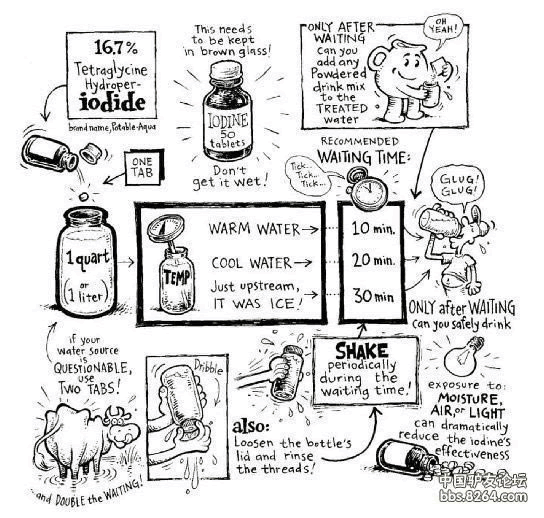 16.7%
Tetraglycine
Hydroper-
iodide
brand name, Potable-Aqua
This needs
to be kept
in brown glass!
IODINE
50
tablets
Don't
get it wet!
ONLY AFTER
WAITING
can you
add any
Powdered
drink mix
to the
TREATED
water
OH
YEAH!
ONE
TAB
RECOMMENDED
WAITING TIME:
Tick...
Tick...
Tick...
1 quart
(or
1 liter)
TEMP
WARM WATER→
10 min.
COOL WATER→
20 min.
Just upstream,
IT WAS ICE!→
30 min
GLUG!
GLUG!
ONLY after WAITING
can you safely drink
if your
water source
is
QUESTIONABLE,
use
TWO TABS!
...and DOUBLE the WAITING!
Dribble
also:
Loosen the bottle's
lid and rinse
the threads!
SHAKE
periodically
during the
waiting time!
exposure to:
MOISTURE,
AIR, or LIGHT
can dramatically
reduce the iodine's
effectiveness
中国驴友论坛
bbs.8264.com